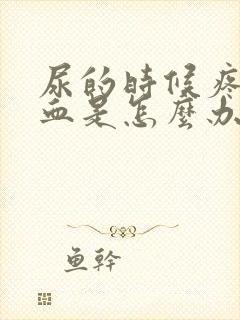 尿的時候疼
血是怎麼办
鱼幹